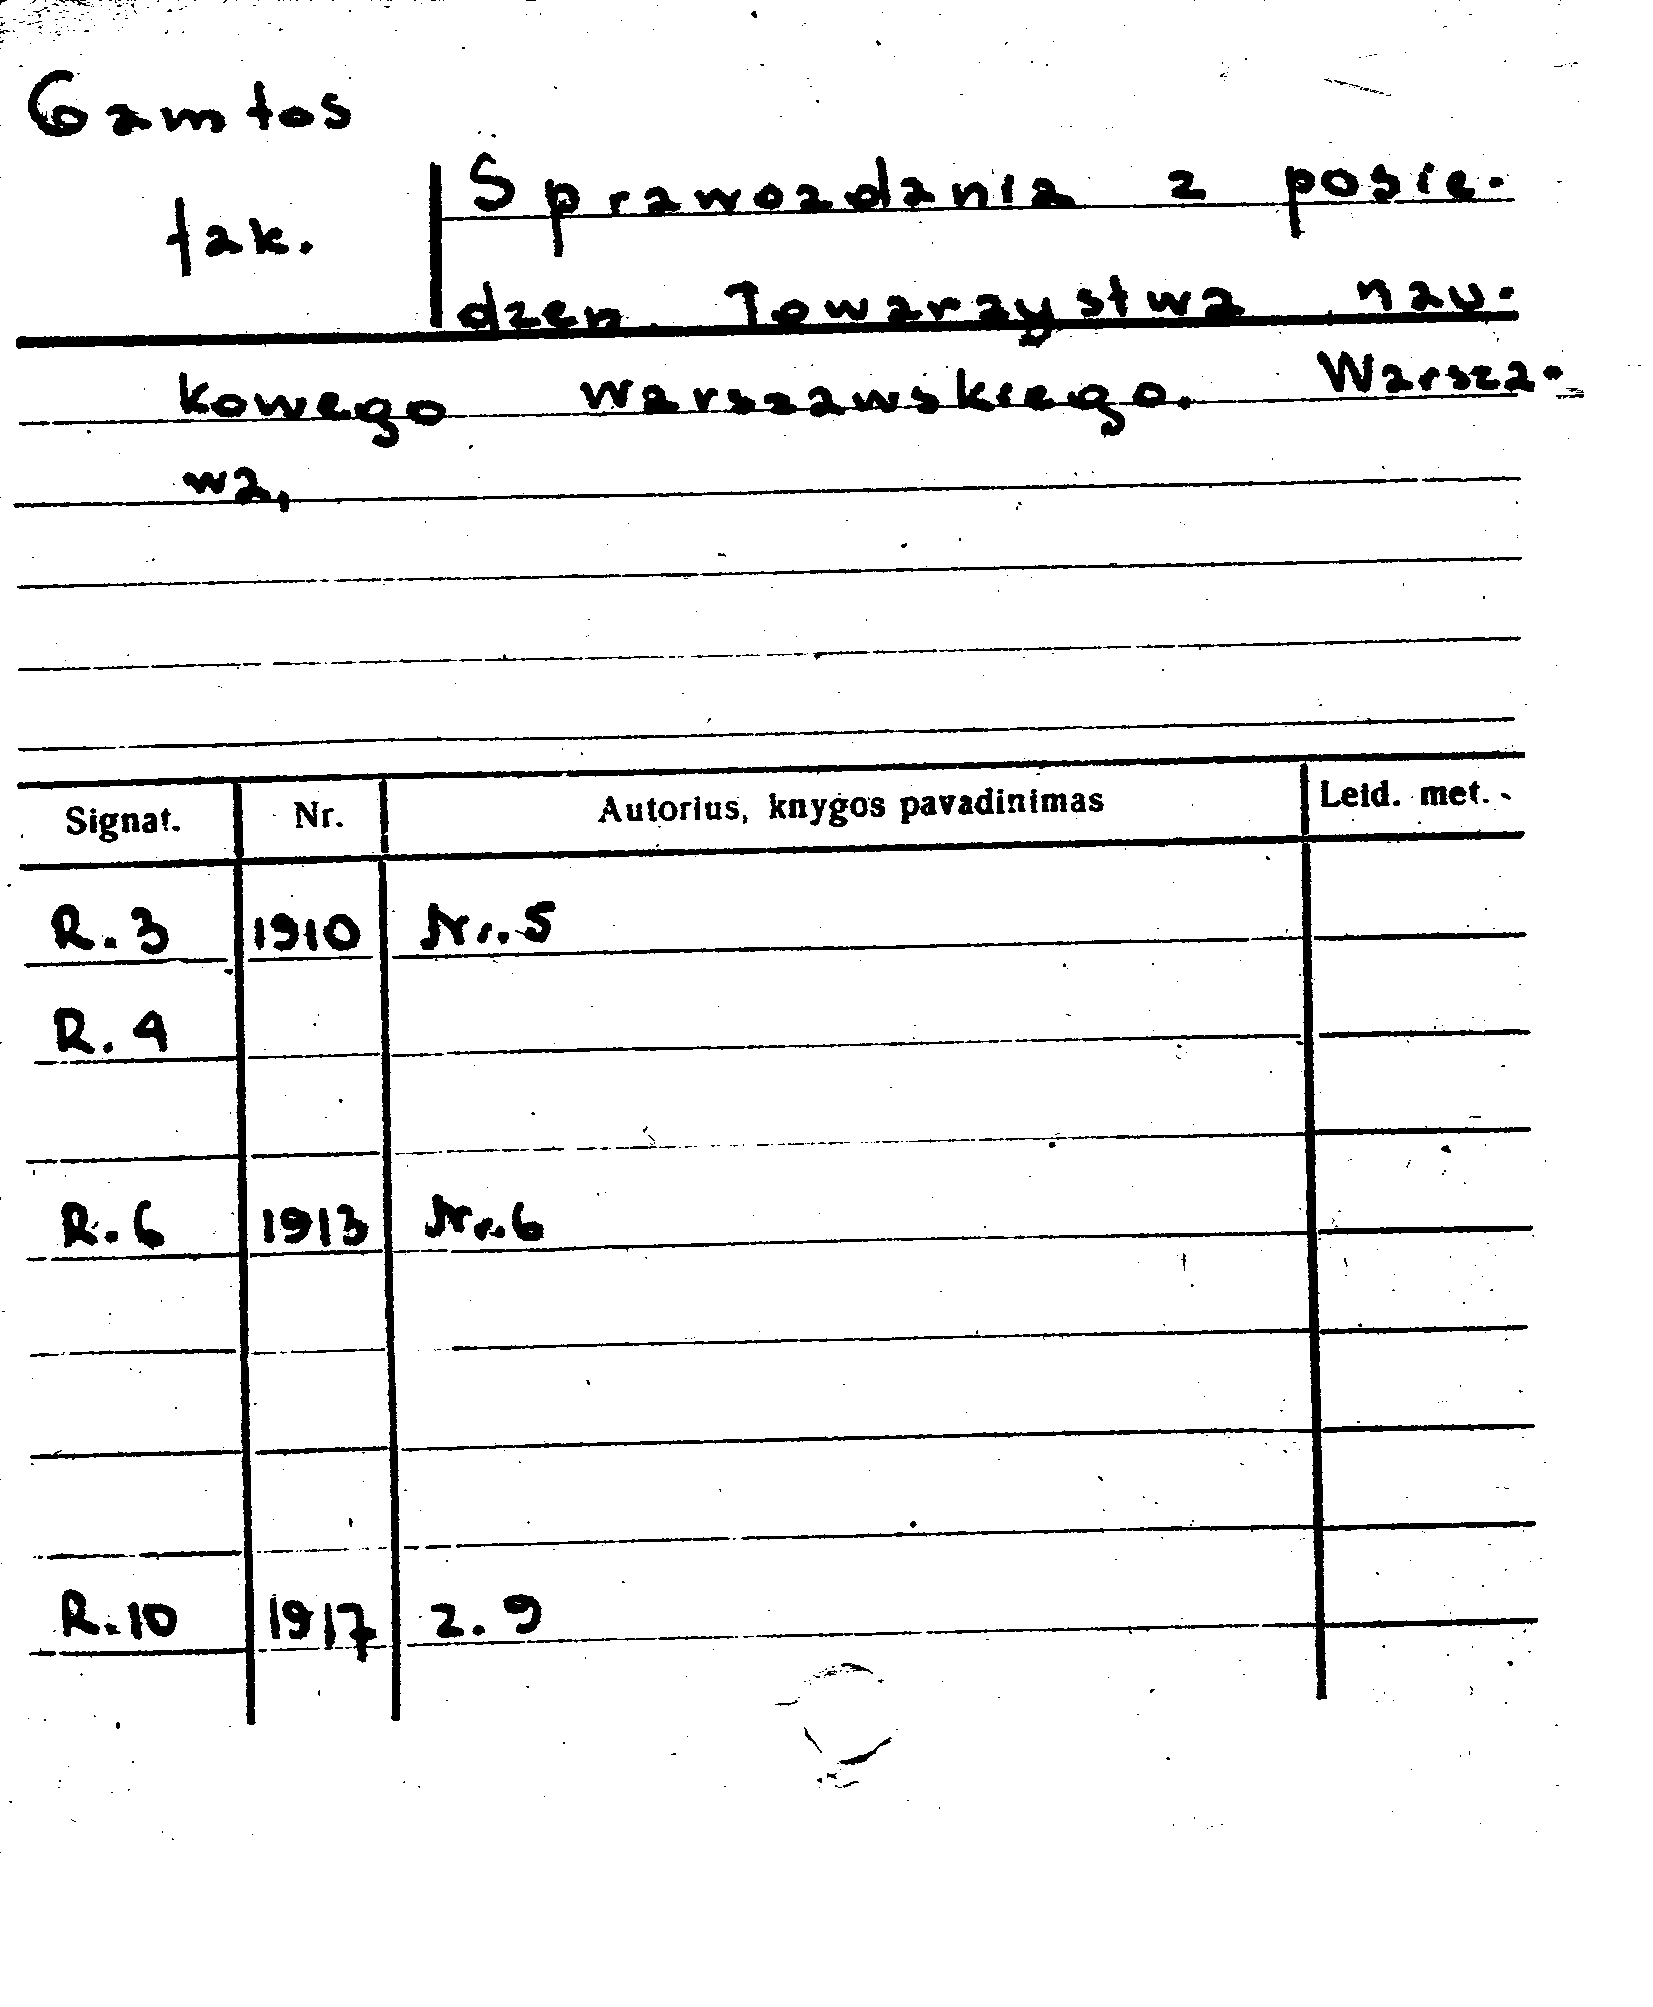 Gamtos
Sprawozdania z posie-
fak.
dzen Towarzystwa nau-
kowego warszawskiego. Warsza-
wa,
Signat. Nr. Autorius, knygos pavadinimas Leid. met.
R. 3 1910 Nr. 5
R. 4
R. 6 1913 Nr. 6
R. 10 1917 z. 9